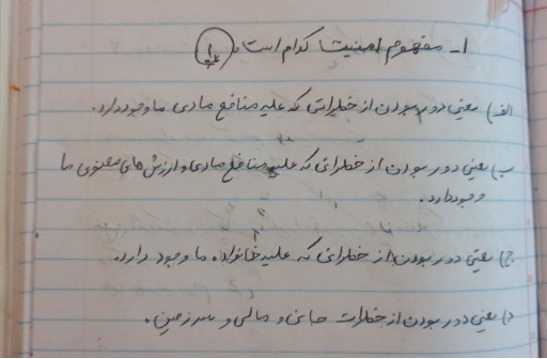 ۱- مفهوم امنیت کدام است؟
الف) یعنی دور بودن از خطراتی که علیه منافع مادی ما وجود دارد.
ب) یعنی دور بودن از خطراتی که علیه منافع مادی و ارزش های معنوی ما
وجود دارد.
ج) یعنی دور بودن از خطراتی که علیه خانواده ما وجود دارد.
د) یعنی دور بودن از خطرات جانی و مالی و سرزمین.